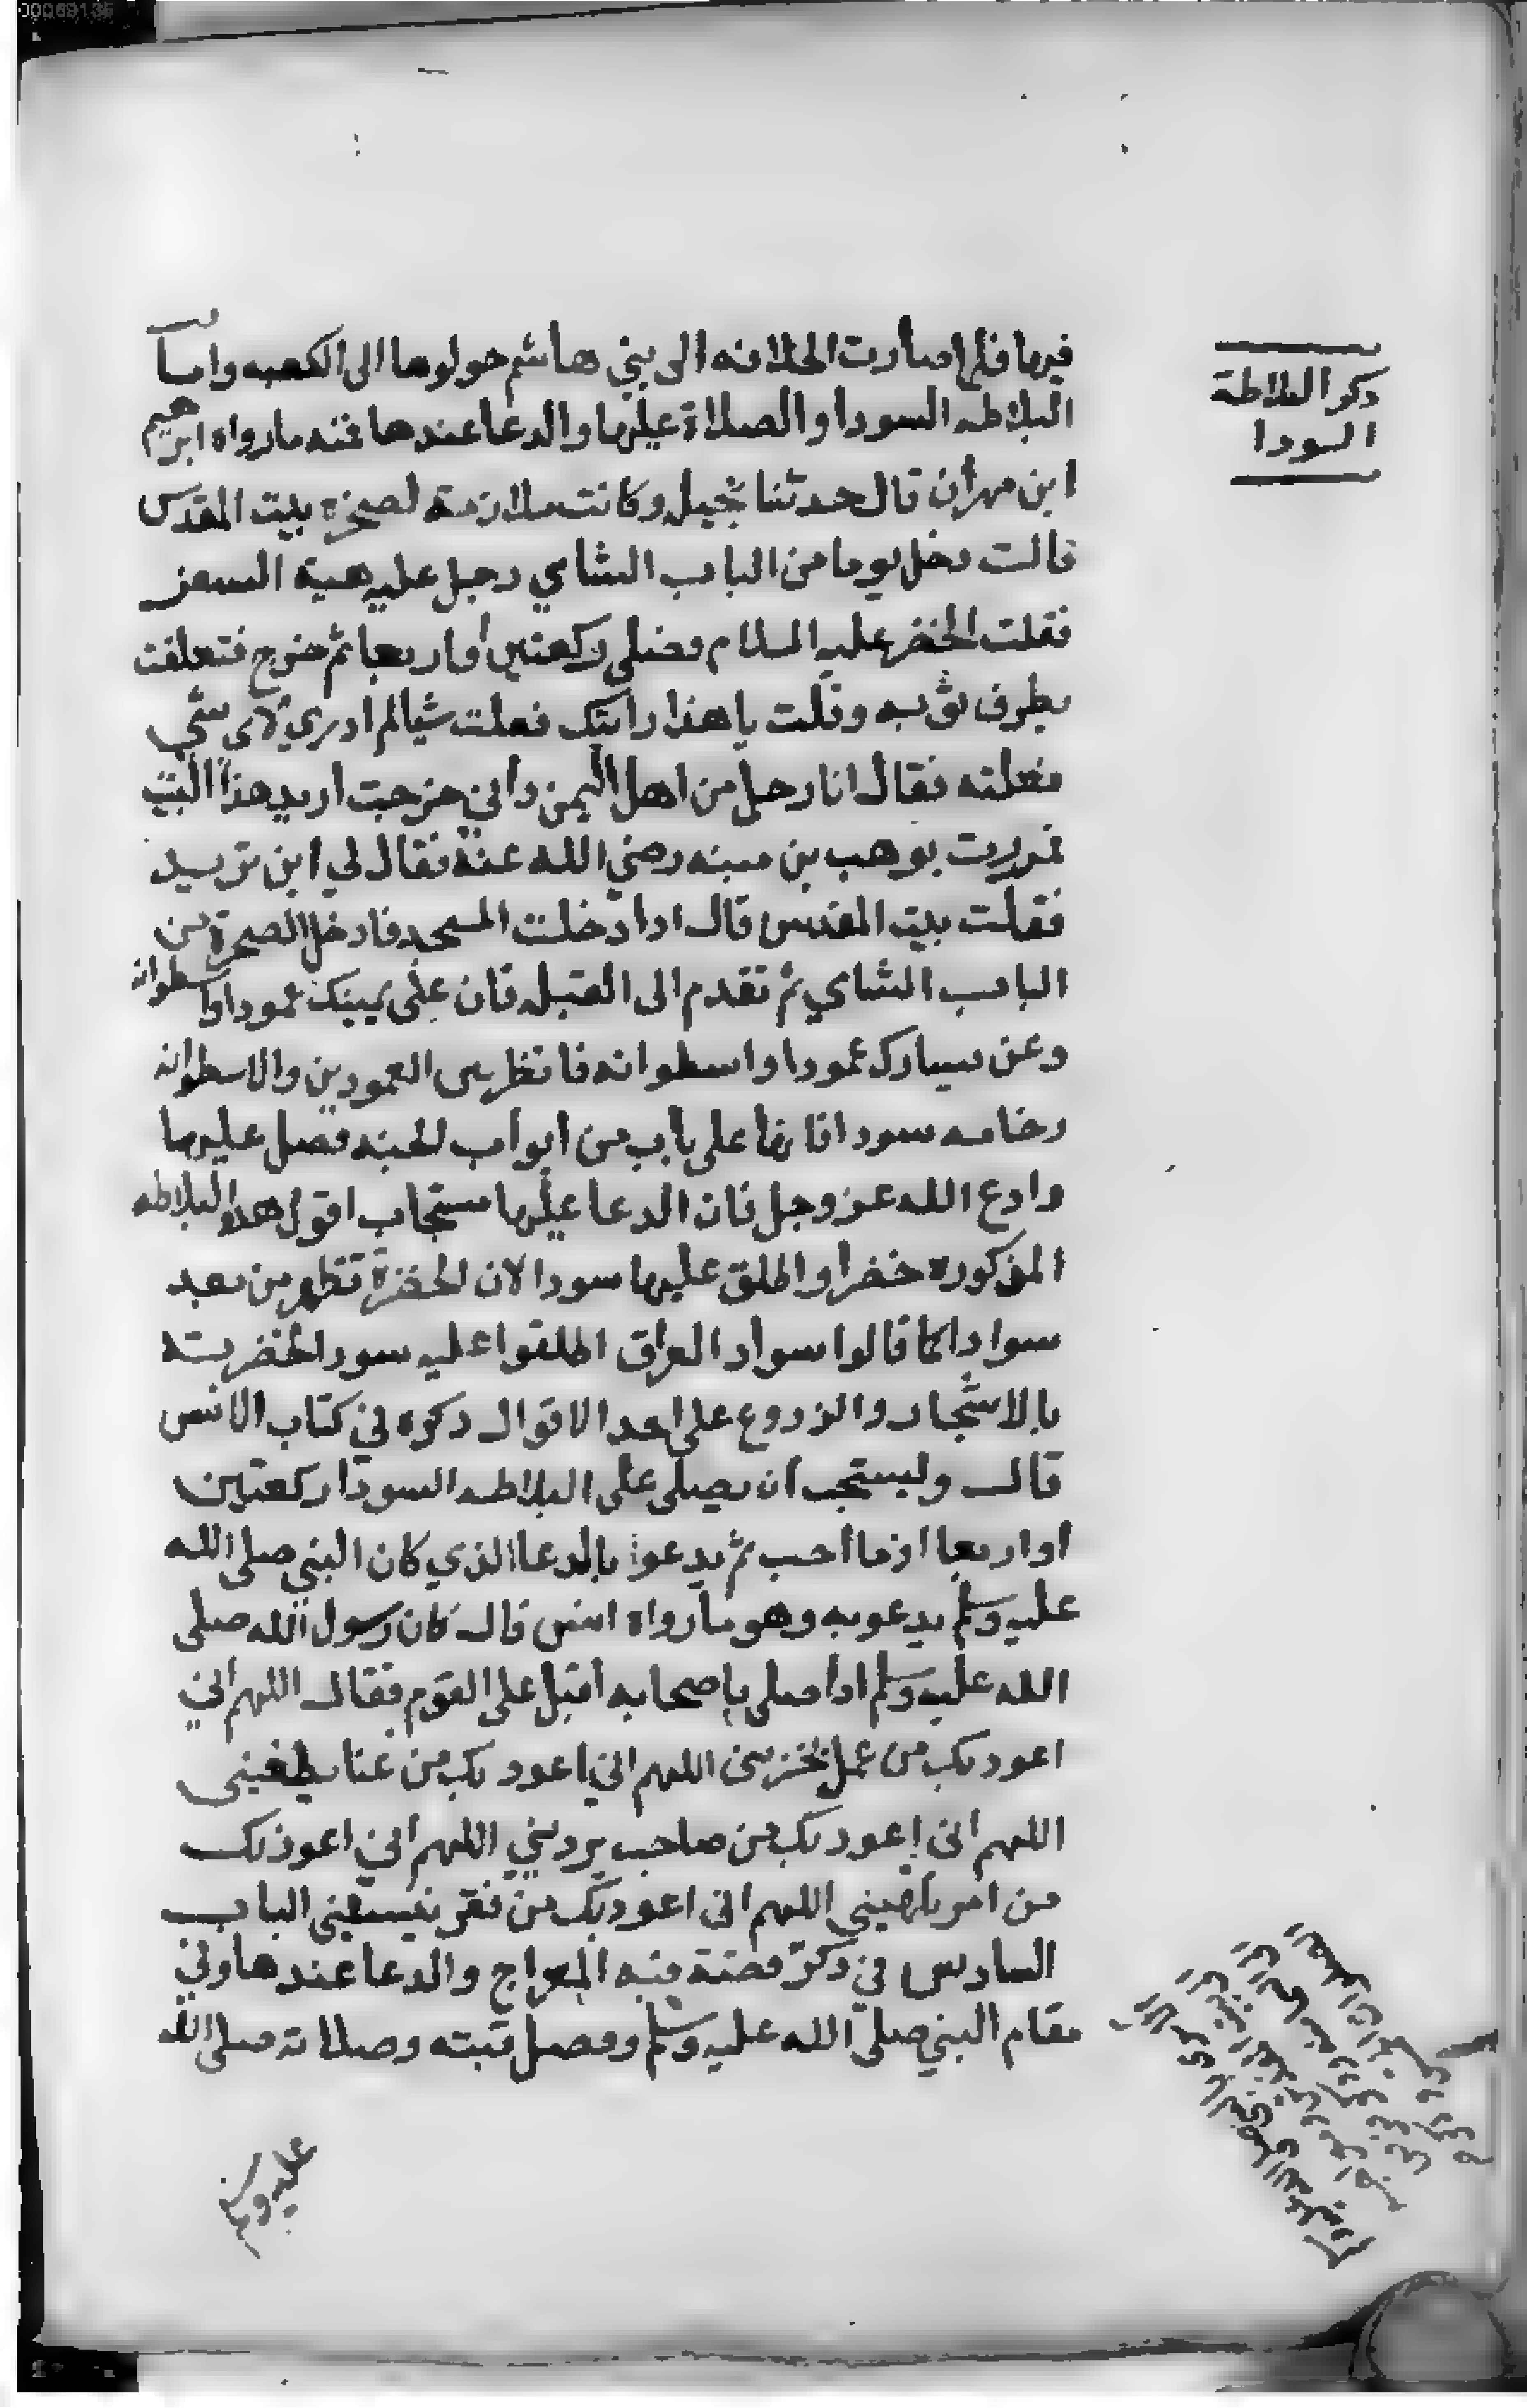 ذكر البلاطة
السودا
فيها فلما صارت الخلافه الى بني هاشم حولوها الى الكعبه واما
البلاطه السودا والصلاة عليها والدعا عندها فنه ما رواه ابراهيم
ابن مهران قال حدثنا نجيل وكانت ملازمة لصخرة بيت المقدس
قالت دخل يوما من الباب الشامي رجل عليه هيئة السفر
فقلت الخضر عليه السلام فصلى ركعتين او اربعا ثم خرج فتعلقت
بطرف ثوبه وقلت يا هذا رايتك فعلت شيا لم ادري لاي شي
فعلته فقال انا رجل من اهل اليمن واني خرجت اريد هذا البيت
فمررت بوهب بن منبه رضي الله عنه فقال لي اين تريد
فقلت بيت المقدس قال اذا دخلت المسجد فادخل الصخرة من
الباب الشامي ثم تقدم الى القبله فان على يمينك عمودا واسطوانه
وعن يسارك عمودا واسطوانه فانظر بين العمودين والاسطوانه
رخامه سودا فانها على باب من ابواب الجنه فصل عليها
وادع الله عز وجل فان الدعا عليها مستجاب اقول هذه البلاطه
المذكوره خضرا واطلق عليها سودا لان الخضرة تظهر من بعد
سوادا كما قالوا سواد العراق اطلقوا عليه سودا لخضرته
بالاشجار والزروع على احد الاقوال ذكره في كتاب الانس
قال وليستحب ان يصلى على البلاطه السودا ركعتين
او اربعا او ما احب ثم يدعوا بالدعا الذي كان النبي صلى الله
عليه وسلم يدعو به وهو ما رواه انس قال كان رسول الله صلى
الله عليه وسلم اذا صلى باصحابه اقبل على القوم فقال اللهم اني
اعوذ بك من عمل يخزيني اللهم اني اعوذ بك من غنا يطغيني
اللهم اني اعوذ بك من صاحب يرديني اللهم اني اعوذ بك
من امر يلهيني اللهم اني اعوذ بك من فقر ينسيني الباب
السادس في ذكر قصة قبة المعراج والدعا عندها وفي
مقام النبي صلى الله عليه وسلم وفضل قبته وصلاته صلى الله
عليه وسلم